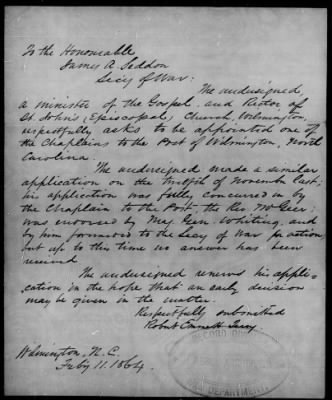 To the Honourable
James A. Seddon
Secy of War:
The undersigned,
a minister of the Gospel, and Rector of
St. John's (Episcopal) Church, Wilmington,
respectfully asks to be appointed one of
the Chaplains to the Post of Wilmington, North
Carolina.
The undersigned made a similar
application on the twelfth of November last;
his application was fully concurred in by
the Chaplain to the Post, the Rev.
was endorsed by Maj. Gen. Whiting, and
by him forwarded to the Secy of War for action
but up to this time no answer has been
received.
The undersigned renews his appli-
cation in the hope that an early decision
may be given in the matter.
Respectfully submitted
Robert Emmett Terry.
Wilmington, N.C.
Feb'y 11. 1864.
RECORD DIVISION
WAR DEPARTMENT